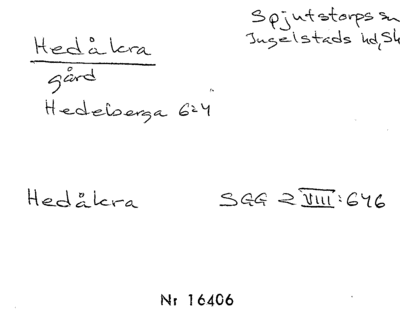 Hedåkra
Spjutstorps sn
Ingelstads hd, Sk
gård
Hedeberga 6:24
Hedåkra SGG 2 VIII:646
Nr 16406